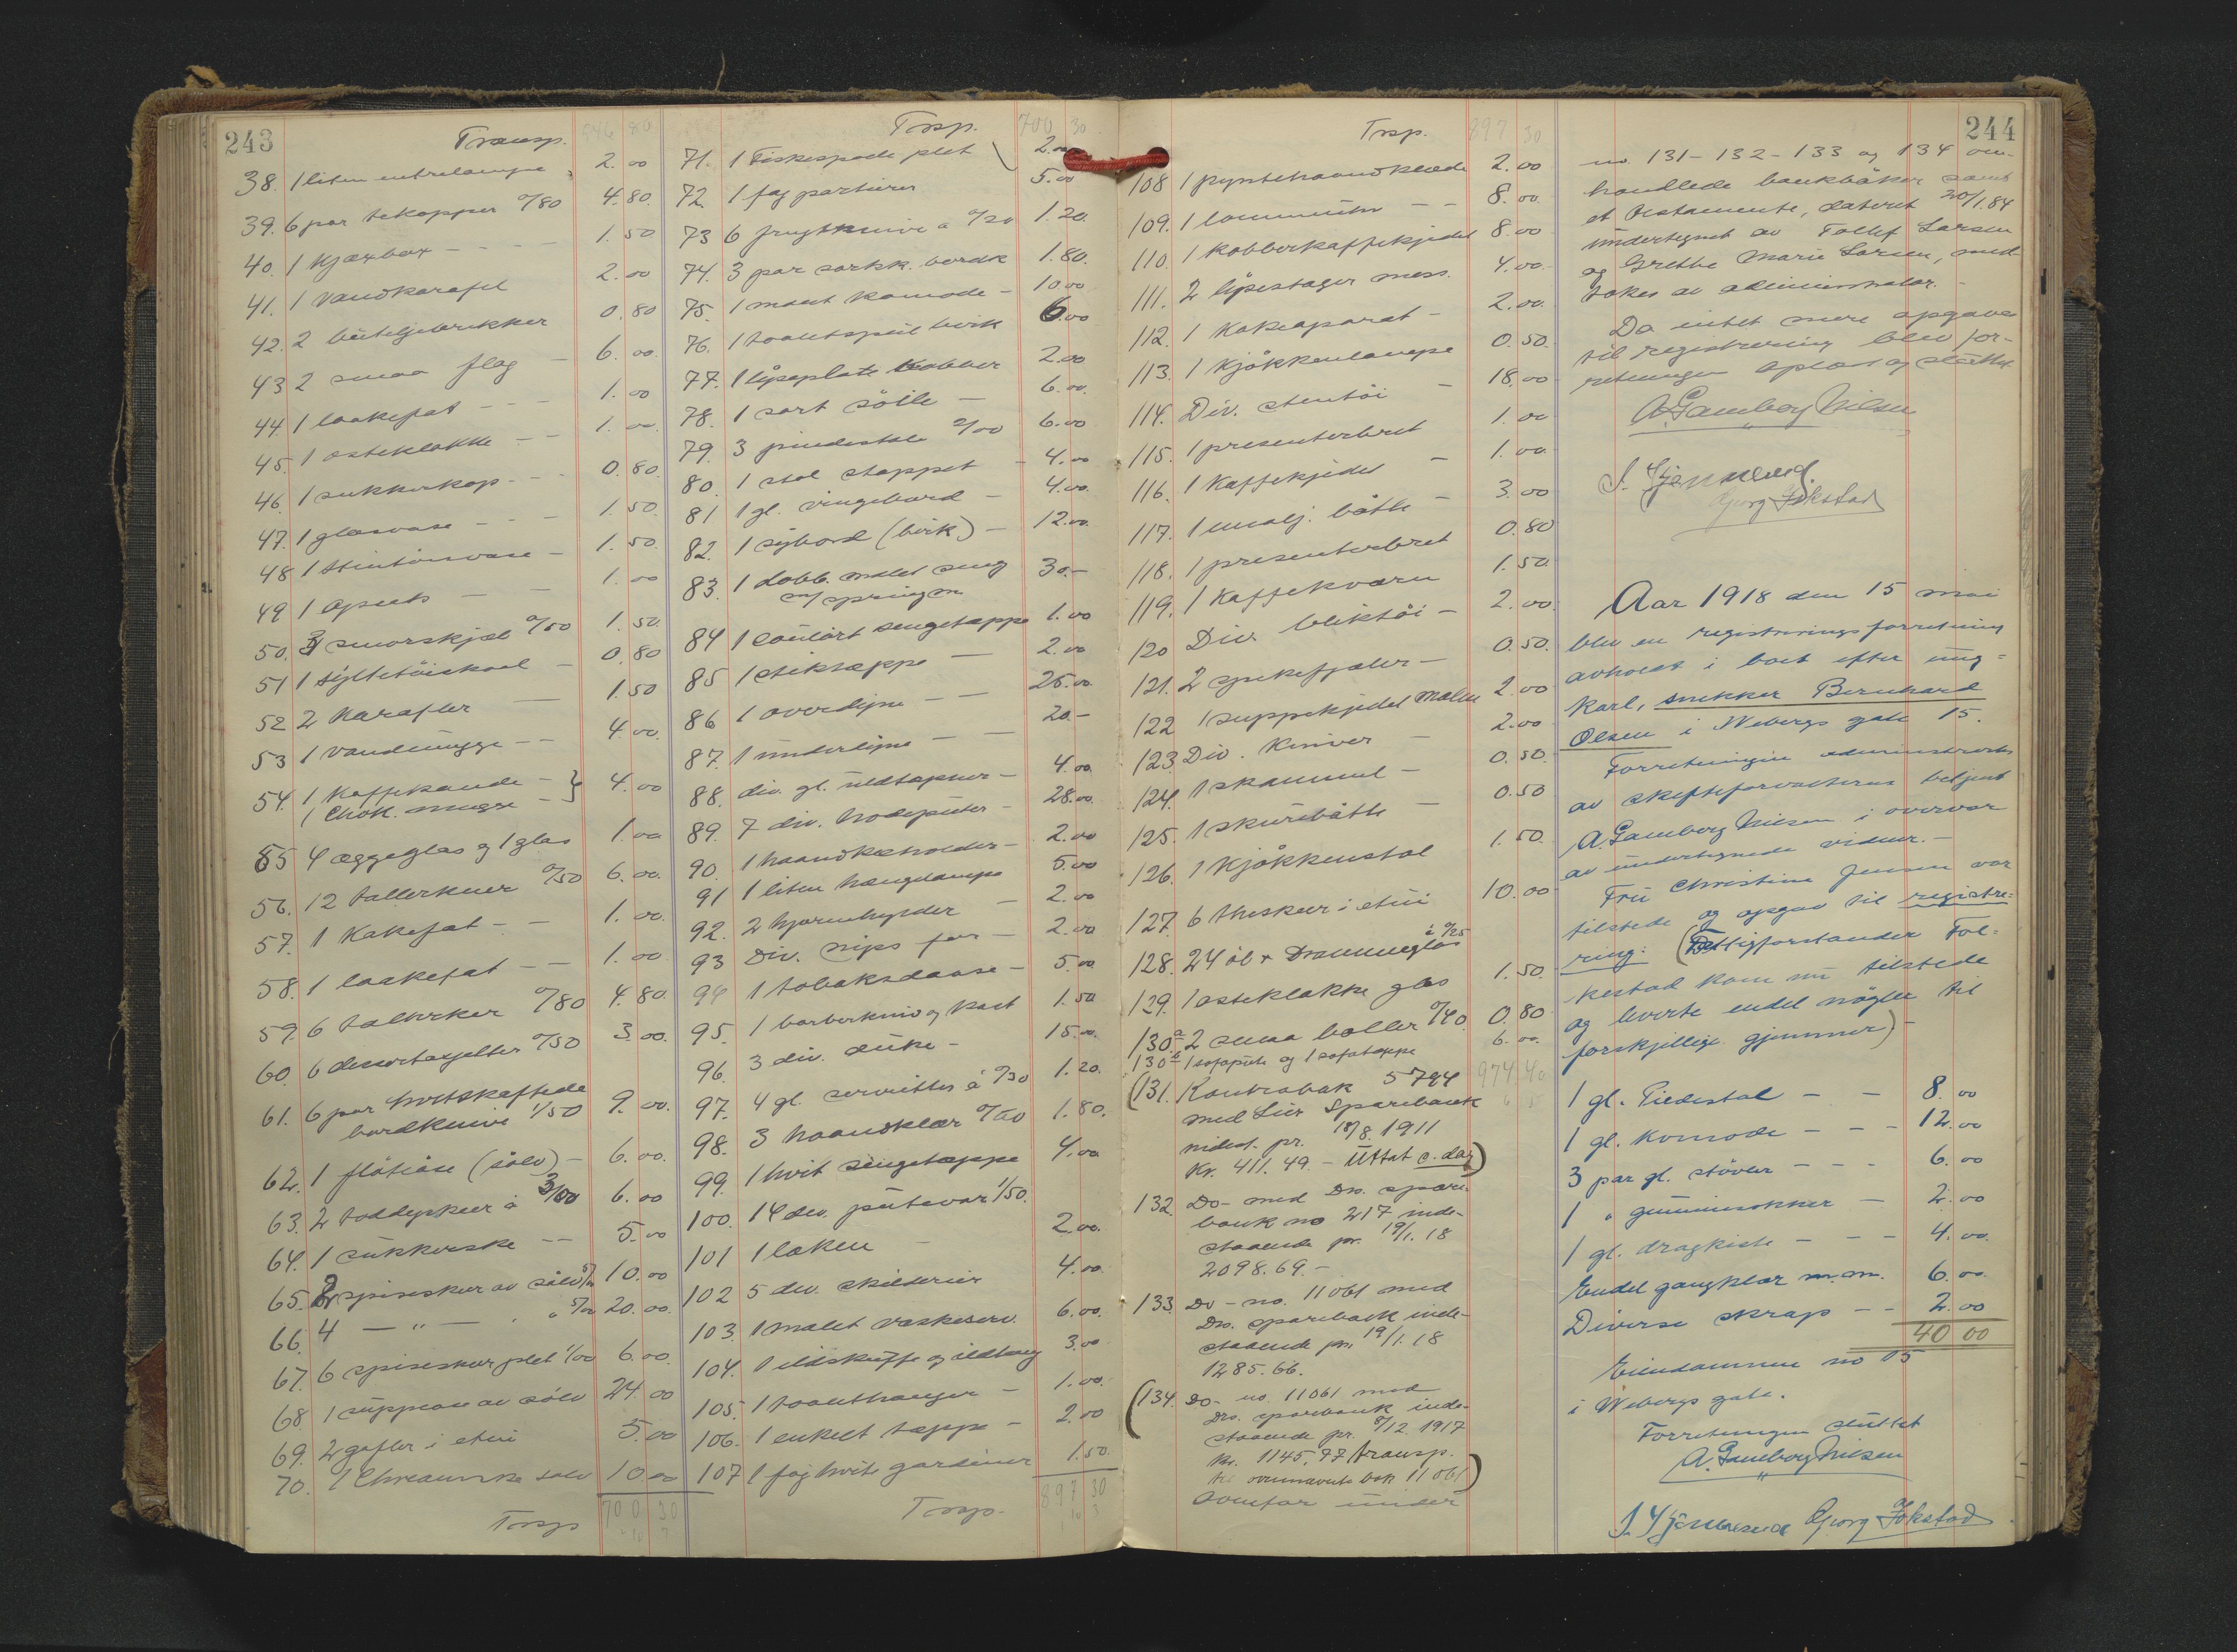 243
Transp. 596 80
38. 1 liten entrelampe 2.00
39. 6 par tekopper 0/80 4.80
40. 1 Kjæxbox 1.50
41. 1 Vandkarafel 2.00
42. 2 buteljebrikker 0.80
43 2 smaa flag 6.00
44 1 laakefat 1.00
45. 1 osteklokke 1.00
46. 1 sukkerkop 0.80
47. 1 glasvase 1.50
48 1 stentøivase 1.50
49 1 opsets 1.00
50. 3 smørskjæl 0/50 1.50
51 1 syltetøiskaal 0.80
52 2 Karafler 1.50
53 1 Vandmugge 4.00
54. 1 Kaffekande
1 Chok. mugge 4.00
55 4 æggeglas og 1 glas 1.00
56. 12 tallerkner 0/50 6.00
57. 1 Kakefat 1.00
58. 1 laakefat 1.00
59. 6 tallerker 0/80 4.80
60. 6 desertasjetter 0/50 3.00
61. 6 par hvitskaftede
bordknive 1/50 9.00
62. 1 fløteøse (sølv) 6.00
63. 2 toddyskeer à 3/00 6.00
64. 1 sukkerske 5.00
65. 2 spiseskeer av sølv 5/00 10.00
66. 4 — " — 5/00 20.00
67. 6 spiseskeer plet 1/00 6.00
68 1 suppeøse av sølv 24.00
69. 2 gafler i etui 5.00
70. 1 sølv 10.00
Trsp 700 30
Trsp. 700 30
71. 1 Fiskespade plet 2.00
72. 1 fag portierer 5.00
73 6 frugtknive a 0/20 1.20
74. 3 par sorksk. bordk 1.80
75. 1 malt Komode 10.00
76. 1 toiletspeil birk 6.00
77. 1 lyseplate Kobber 2.00
78. 1 sort søile 6.00
79. 3 pindestole 2/00 6.00
80. 1 stol stoppet 4.00
81 1 gl. vingebord 4.00
82. 1 sybord (birk) 12.00
83. 1 dobb. malet seng
m/ springm 30.-
84 1 coulørt sengetæppe 1.00
85 1 stiktæppe 2.00
86 1 overdyne 25.00
87. 1 underdyne 20.-
88. div. gl. uldtæpper 4.00
89. 7 div. hodeputer 28.00
90. 1 haandkæholder 2.00
91 1 liten hængelampe 5.00
92. 2 hjørnehylder 2.00
93 Div. nips for 2.00
94 1 tobaksdaase 5.00
95. 1 barberkniv og kost 1.50
96. 3 div. duke 15.00
97. 4 gl. servietter à 0/30 1.20
98. 3 haandklær 0/60 1.80
99. 1 hvit sengetæppe 4.00
100. 14 div. putevar 1/50.
101 1 laken 2.00
102 5 div. skilderier 4.00
103. 1 malet vaskeserv. 6.00
104. 1 ildskuffe og ildtang 3.00
105. 1 toalthænger 1.00
106. 1 enkelt tæppe 2.00
107 1 fag hvite gardiner 1.50
Trsp. 897 30
244
Trsp. 897 30
108 1 pyntehaandklæde 2.00
109. 1 lommeuhr 8.00
110. 1 Kobberkaffekjedel 8.00
111. 2 lysestager mess. 4.00
112. 1 Kokeaparat 2.00
113. 1 Kjøkkenlampe 0.50
114. Div. stentøi 18.00
115. 1 presenterbret 1.00
116. 1 Kaffekjedel 1.00
117. 1 emalj. bøtte 3.00
118. 1 presenterbret 0.80
119. 1 Kaffekværn 1.50
120 Div. bliktøi 2.00
121. 2 spekefjæler 0.50
122 1 suppekjedel malm 2.00
123 Div. Kniver 2.00
124. 1 skammel 0.50
125. 1 skurebøtte 0.50
126. 1 Kjøkkenstol 1.50
127. 6 theskeer i etui 10.00
128. 24 øl + Drammeglas à 0/25
129. 1 osteklokke glas 1.50
130 a 2 smaa boller 0/40 0.80
130 b 1 sofapute og 1 sofatæppe 6.00
(131. Kontrabok 5794 974.40
med Lier Sparebank
indest. pr. 18/8. 1911
Kr. 411.49. - Uttat s. dag)
132. Do- med Drs. spare-
bank no 217 inde-
staaende pr. 19/1. 18
2098.69.-
133. Do - no. 11061 med
Drs. sparebank inde-
staaende pr. 19/1. 18
1285.66.
(134. Do- no. 11061 med
Drs. sparebank inde-
staaende pr. 9/12 1917
Kr. 1145,97 transp.
til ovennævnte bok 11061)
Ovenfor under
no. 131 - 132 - 133 og 134 om-
handlede bankbøker samt
et testamente, dateret 20/1.84
undertegnet av Tollef Larsen
og Grethe Marie Larsen, med-
tokes av administrator.
Da intet mere opgaves
til registrering blev for-
retningen oplæst og sluttet
A. Gamborg Nilsen
Georg Fokstad
Aar 1918 den 15 mai
blev en registreringsforretning
avholdt i boet efter ung=
karl, snekker Bernhard
Olsen i Webergs gate 15.
Forretningen administrertes
av skifteforvalterens betjent
A. Gamborg Nilsen i overvær
av undertegnede vidner.-
Fru Christine Jensen var
tilstede og opgav til registre=
ring: (Fattigforstander Fol=
kestad kom nu tilstede
og leverte endel nøgler til
forskjellige gjemmer)
1 gl. Piedestal 8.00
1 gl. Komode 12.00
3 par gl. støvler 6.00
1 " gummisokker 2.00
1 gl. dragkiste 4.00
Endel gangklær m.m. 6.00
Diverse skrap 2.00
40 00
Eiendommen no 15
i Webergs gate.
Forretningen sluttet
A. Gamborg Nilsen
Georg Fokstad